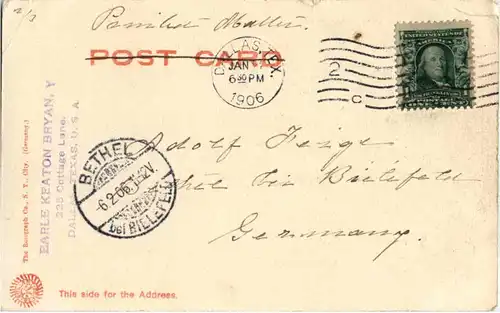 2/3
Printed Matter.
POST CARD
DALLAS, TEX.
JAN
6 30 PM
1906
2
C
UNITED STATES OF AMERICA
Adolf
BETHEL
6.2.06.
bei BIELEFELD
bei Bielefeld
Germany.
EARLE KEATON BRYAN, Y
225 Cottage Lane.
DALLAS, TEXAS, U. S. A
The Rotograph Co., N. Y. City. (Germany.)
This side for the Address.